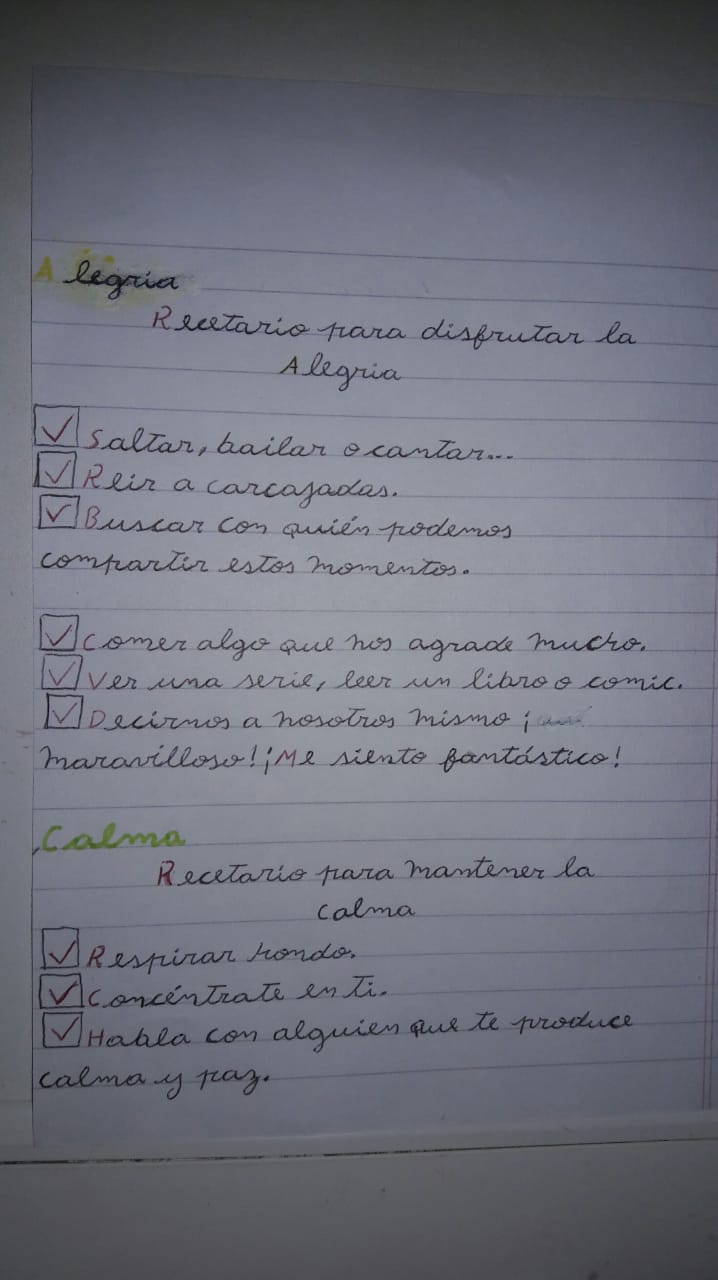 Alegria
Recetario para disfrutar la
Alegria
Saltar, bailar o cantar...
Reir a carcajadas.
Buscar con quién podemos
compartir estos momentos.
comer algo que nos agrade mucho.
Ver una serie, leer un libro o comic.
Decirnos a nosotros mismo ¡
maravilloso! ¡Me siento fantástico!
Calma
Recetario para mantener la
calma
Respirar hondo.
Concéntrate en ti.
Habla con alguien que te produce
calma y paz.